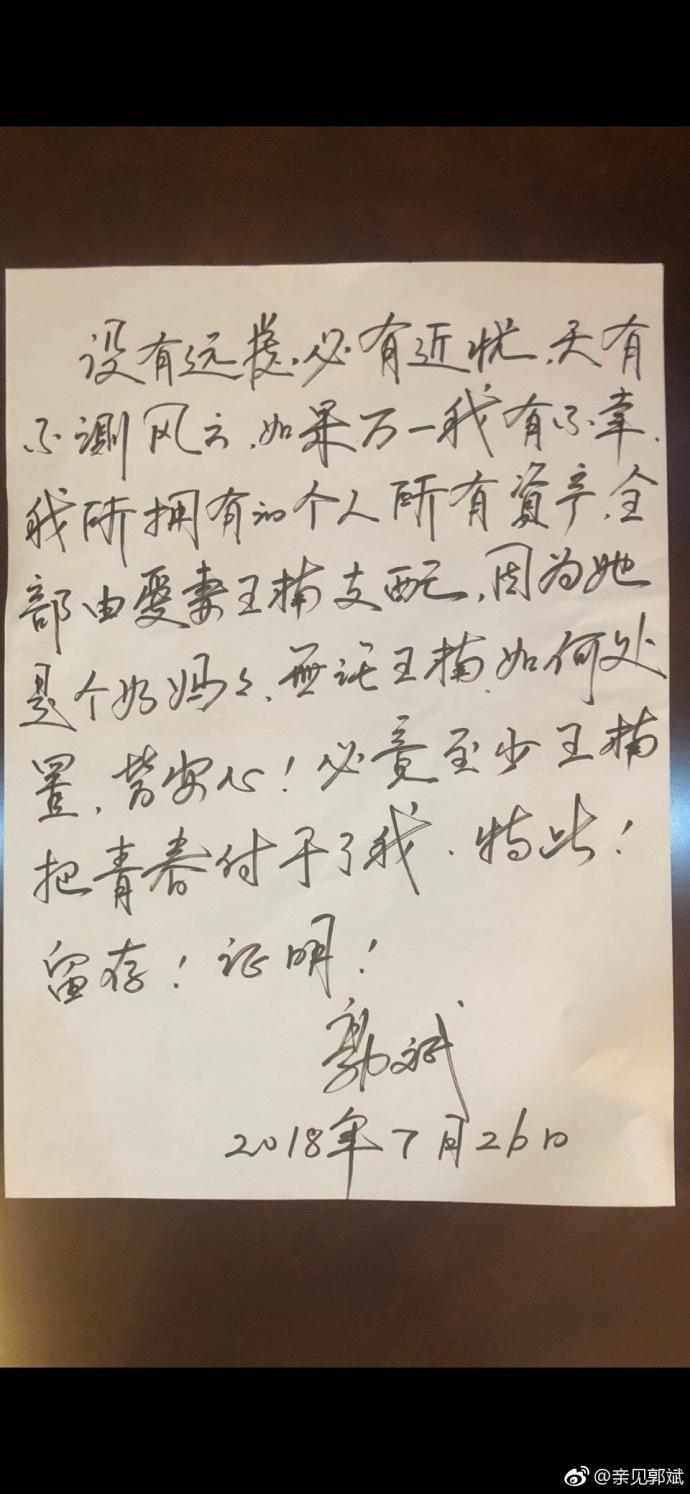 没有远虑.必有近忧.天有
不测风云.如果万一我有不幸.
我所拥有的个人所有资产.全
部由爱妻王楠支配.因为她
是个好妈々.无论王楠.如何处
置.皆安心!必竟至少王楠
把青春付于了我.特此!
留存!证明!
郭斌
2018年7月26日
@亲见郭斌